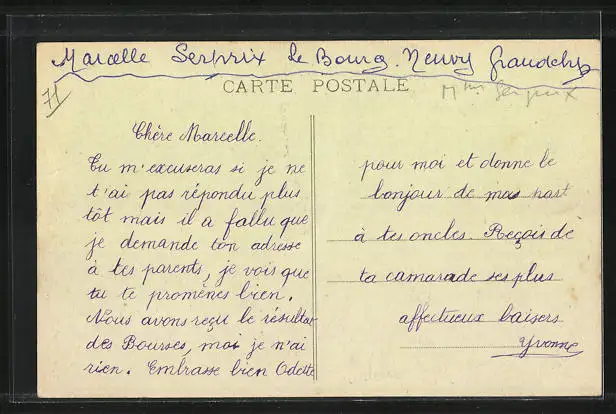 Marcelle Serprix le Bourg. Neuvy Grandchp
CARTE POSTALE
71
Mme Serprix
Chère Marcelle.
Tu m'excuseras si je ne
t'ai pas répondu plus
tôt mais il a fallu que
je demande ton adresse
à tes parents, je vois que
tu te promènes bien.
Nous avons reçu le résultat
des Bourses, moi je n'ai
rien. Embrasse bien Odette
pour moi et donne le
bonjour de ma part
à tes oncles. Reçois de
ta camarade ses plus
affectueux baisers
Yvonne